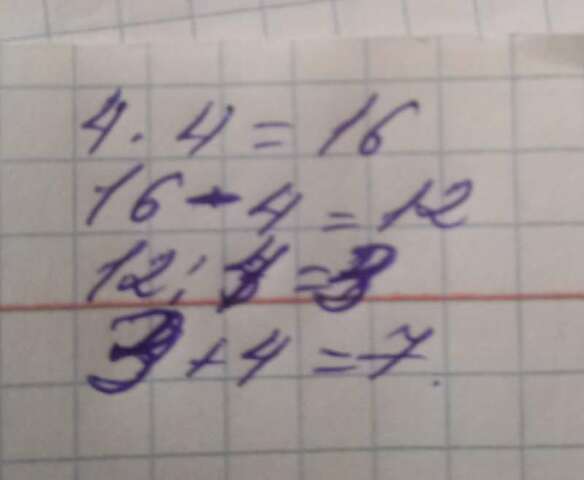 4 · 4 = 16
16 - 4 = 12
12 : 4 = 3
3 + 4 = 7.